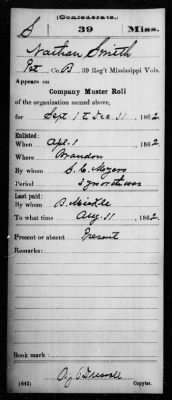 (Confederate.)
S 39 Miss.
Nathan Smith
Pvt, Co. B, 39 Reg't Mississippi Vols.
Appears on
Company Muster Roll
of the organization named above,
for Sept 1 to Dec. 31, 1862
Enlisted:
When Apl. 1, 1862
Where Brandon
By whom S. C. Moyers
Period 3 years or the war
Last paid:
By whom
To what time Aug. 31, 1862
Present or absent Present
Remarks:
Book mark:
(642) Copyist.